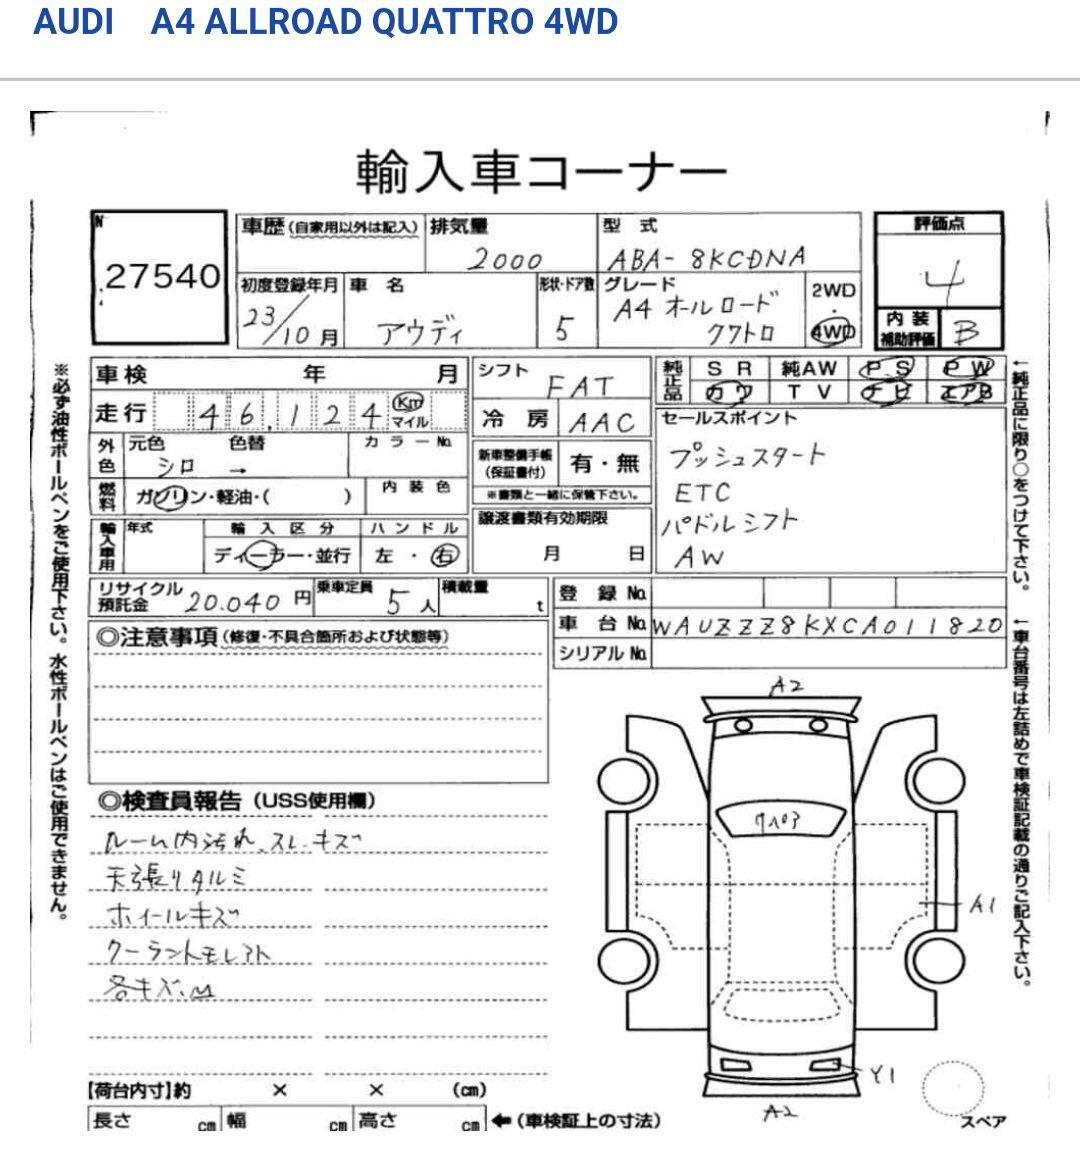 AUDI A4 ALLROAD QUATTRO 4WD
輸入車コーナー
N
27540
車歴(自家用以外は記入)
排気量
2000
型式
ABA-8KCDNA
評価点
4
内装補助評価
B
初度登録年月
23/10月
車名
アウディ
形状・ドア数
5
グレード
A4 オールロード
クワトロ
2WD
・
4WD
車検 年 月
走行 46,124 Km
マイル
シフト
FAT
冷房 AAC
純正品
SR 純AW PS PW
カワ TV ナビ エアB
外色
元色 色替 カラーNo.
シロ →
新車整備手帳
(保証書付)
有・無
※書類と一緒に保管下さい。
セールスポイント
プッシュスタート
ETC
パドルシフト
AW
燃料
ガソリン・軽油・( )
内装色
輸入車用
年式
輸入区分
ハンドル
ディーラー・並行
左・右
譲渡書類有効期限
月 日
リサイクル預託金 20.040円
乗車定員 5人
積載量 t
登録No.
車台No. WAUZZZ8KXCA011820
シリアルNo.
◎注意事項(修復・不具合箇所および状態等)
◎検査員報告(USS使用欄)
ルーム内汚れ、スレ、キズ
天張りタルミ
ホイールキズ
クーラントモレアト
各キズ、
A2
A1
Y1
A2
スペア
【荷台内寸】約 × × (cm)
長さ cm 幅 cm 高さ cm ←(車検証上の寸法)
※必ず油性ボールペンをご使用下さい。水性ボールペンはご使用できません。
←純正品に限り○をつけて下さい。
←車台番号は左詰めで車検証記載の通りご記入下さい。